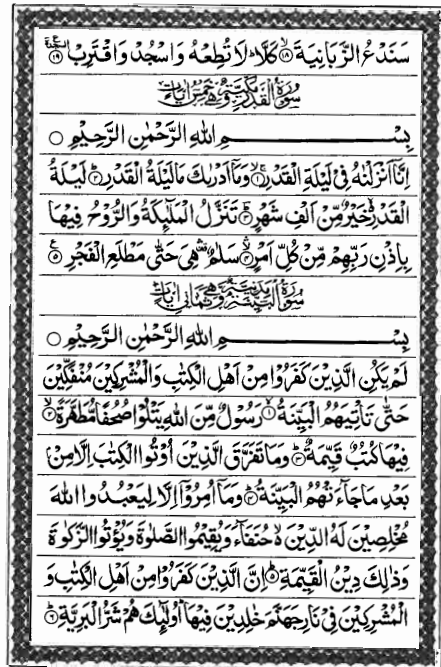 سَنَدْعُ الزَّبَانِيَةَ ۙ﴿۱۸﴾ كَلَّا ؕ لَا تُطِعْهُ وَاسْجُدْ وَاقْتَرِبْ ﴿۱۹﴾
سُوْرَةُ الْقَدْرِ مَكِّيَّةٌ وَّهِيَ خَمْسُ اٰيَاتٍ
بِسْمِ اللّٰهِ الرَّحْمٰنِ الرَّحِيْمِ ○
اِنَّاۤ اَنْزَلْنٰهُ فِیْ لَيْلَةِ الْقَدْرِ ﴿۱﴾ وَمَاۤ اَدْرٰىكَ مَا لَيْلَةُ الْقَدْرِ ؕ﴿۲﴾ لَيْلَةُ
الْقَدْرِ خَيْرٌ مِّنْ اَلْفِ شَهْرٍ ؕ﴿۳﴾ تَنَزَّلُ الْمَلٰٓئِكَةُ وَالرُّوْحُ فِيْهَا
بِاِذْنِ رَبِّهِمْ مِّنْ كُلِّ اَمْرٍ ۙ﴿۴﴾ سَلٰمٌ هِیَ حَتّٰى مَطْلَعِ الْفَجْرِ ﴿۵﴾
سُوْرَةُ الْبَيِّنَةِ مَدَنِيَّةٌ وَّهِيَ ثَمَانِي اٰيَاتٍ
بِسْمِ اللّٰهِ الرَّحْمٰنِ الرَّحِيْمِ ○
لَمْ يَكُنِ الَّذِيْنَ كَفَرُوْا مِنْ اَهْلِ الْكِتٰبِ وَالْمُشْرِكِيْنَ مُنْفَكِّيْنَ
حَتّٰى تَاْتِيَهُمُ الْبَيِّنَةُ ۙ﴿۱﴾ رَسُوْلٌ مِّنَ اللّٰهِ يَتْلُوْا صُحُفًا مُّطَهَّرَةً ۙ﴿۲﴾
فِيْهَا كُتُبٌ قَيِّمَةٌ ؕ﴿۳﴾ وَمَا تَفَرَّقَ الَّذِيْنَ اُوْتُوا الْكِتٰبَ اِلَّا مِنْۢ
بَعْدِ مَا جَآءَتْهُمُ الْبَيِّنَةُ ؕ﴿۴﴾ وَمَاۤ اُمِرُوْۤا اِلَّا لِيَعْبُدُوا اللّٰهَ
مُخْلِصِيْنَ لَهُ الدِّيْنَ ۙ حُنَفَآءَ وَيُقِيْمُوا الصَّلٰوةَ وَيُؤْتُوا الزَّكٰوةَ
وَذٰلِكَ دِيْنُ الْقَيِّمَةِ ؕ﴿۵﴾ اِنَّ الَّذِيْنَ كَفَرُوْا مِنْ اَهْلِ الْكِتٰبِ وَ
الْمُشْرِكِيْنَ فِیْ نَارِ جَهَنَّمَ خٰلِدِيْنَ فِيْهَا ؕ اُولٰٓئِكَ هُمْ شَرُّ الْبَرِيَّةِ ؕ﴿۶﴾